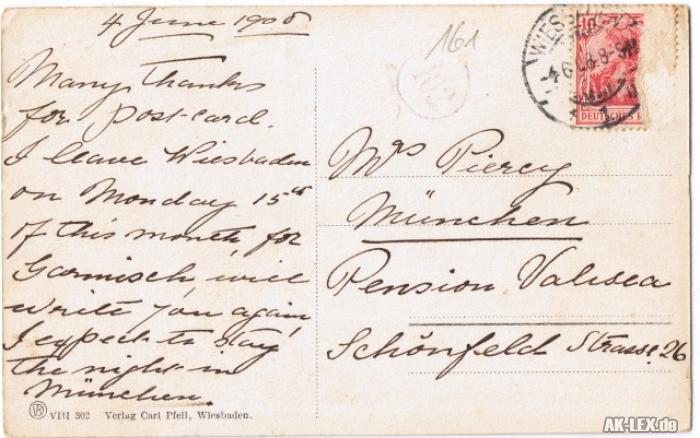 4 June 1908
Many Thanks
for post-card.
I leave Wiesbaden
on Monday 15th
of this month, for
Garmisch, will
write you again,
I expect to stay
the night in
München.
VIII 302 Verlag Carl Pfeil, Wiesbaden.
161
102
WIESBADEN
4.6.08.8-9N
1
10
DEUTSCHES R
Mrs Piercy
München
Pension Valesca
Schönfeld Strasse. 26
AK-LEX.de